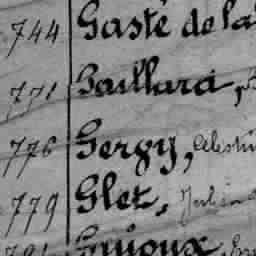 744 Gasté de la
771 Gaillard,
776 Gergy, Célestin
779 Glet,
791 Guioux,